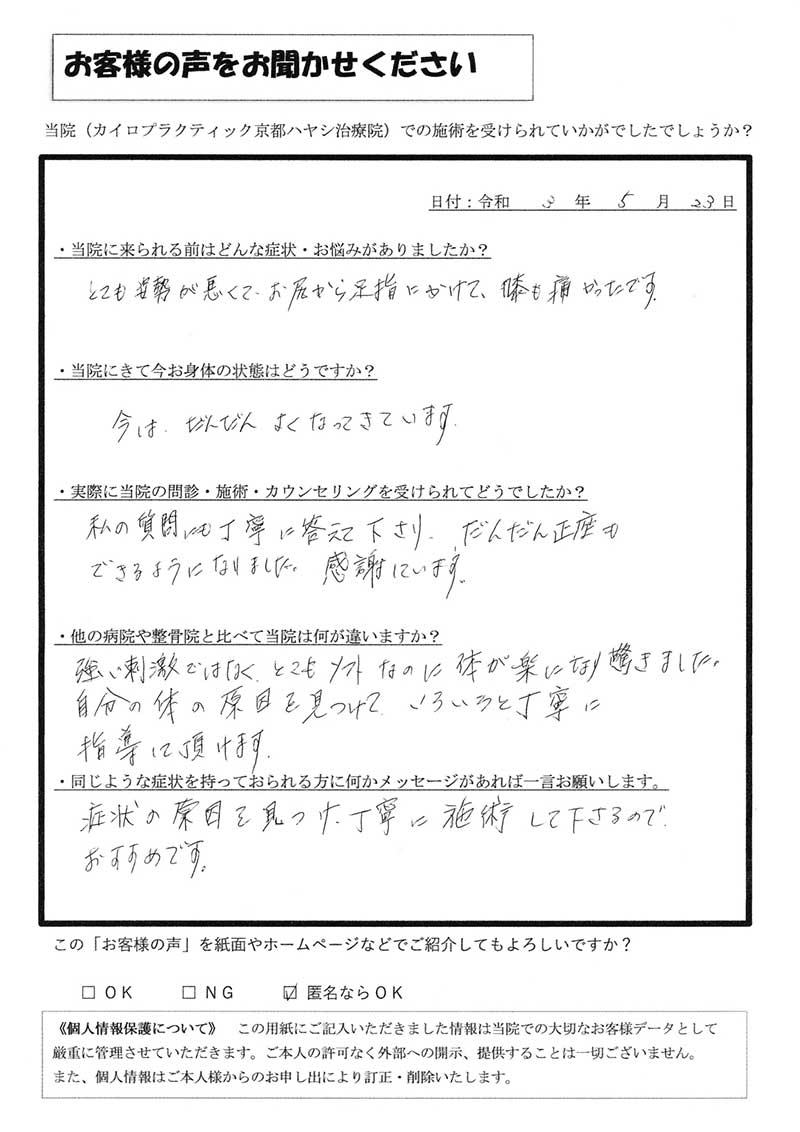 お客様の声をお聞かせください
当院（カイロプラクティック京都ハヤシ治療院）での施術を受けられていかがでしたでしょうか？
日付：令和 3 年 5 月 23 日
・当院に来られる前はどんな症状・お悩みがありましたか？
とても姿勢が悪くて、お尻から足指にかけて、膝も痛かったです。
・当院にきて今お身体の状態はどうですか？
今は、だんだん よくなってきています。
・実際に当院の問診・施術・カウンセリングを受けられてどうでしたか？
私の質問にも丁寧に答えて下さり、だんだん正座も
できるようになりました。感謝しています。
・他の病院や整骨院と比べて当院は何が違いますか？
強い刺激ではなく、とてもソフトなのに体が楽になり驚きました。
自分の体の原因を見つけて、いろいろと丁寧に
指導して頂けます。
・同じような症状を持っておられる方に何かメッセージがあれば一言お願いします。
症状の原因を見つけ、丁寧に施術して下さるので、
おすすめです。
この「お客様の声」を紙面やホームページなどでご紹介してもよろしいですか？
□ ＯＫ □ ＮＧ ☑ 匿名ならＯＫ
《個人情報保護について》 この用紙にご記入いただきました情報は当院での大切なお客様データとして
厳重に管理させていただきます。ご本人の許可なく外部への開示、提供することは一切ございません。
また、個人情報はご本人様からのお申し出により訂正・削除いたします。